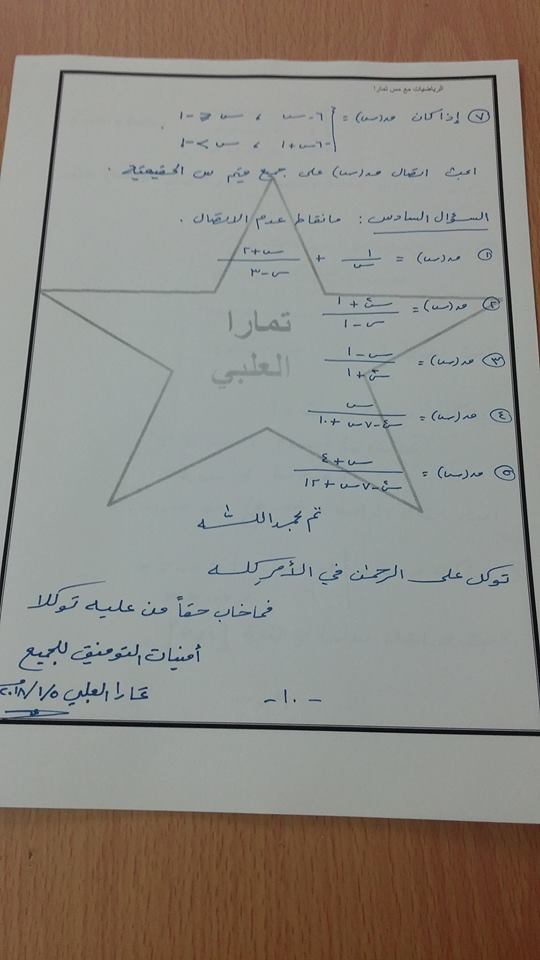 الرياضيات مع مس تمارا
٧ إذا كان ق(س) = { ٦-س ، س ≤ -١
-٦س+١ ، س > -١
ابحث اتصال ق(س) على جميع قيم س الحقيقية .
السؤال السادس : ما نقاط عدم الاتصال .
١ ق(س) = ١/س + (س+٢)/(س-٣)
٢ ق(س) = (س٢+١)/(س-١)
٣ ق(س) = (س-١)/(س٢+١)
تمارا
العلبي
٤ ق(س) = س/(س٢-٧س+١٠)
٥ ق(س) = (س+٤)/(س٢-٧س+١٢)
تم بحمد الله
توكل على الرحمن في الأمر كله
فما خاب حقاً من عليه توكلا
أمنيات التوفيق للجميع
تمارا العلبي ٢٠١٨/١/٥
-١٠-